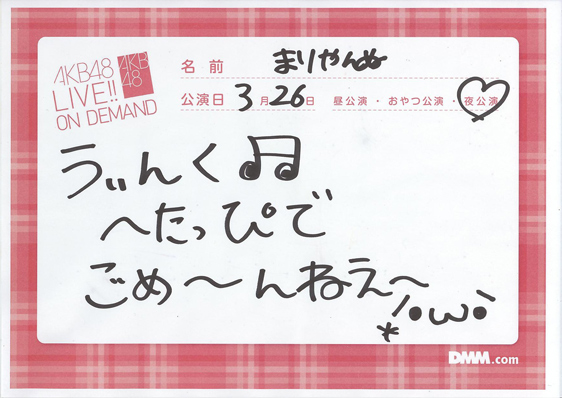 AKB48
LIVE!!
ON DEMAND
AKB
48
名前 まりやんぬ
公演日 3月26日 昼公演・おやつ公演・夜公演
うぃんく♫
へたっぴで
ごめ〜んねえ〜
*/•ω•̀
DMM.com